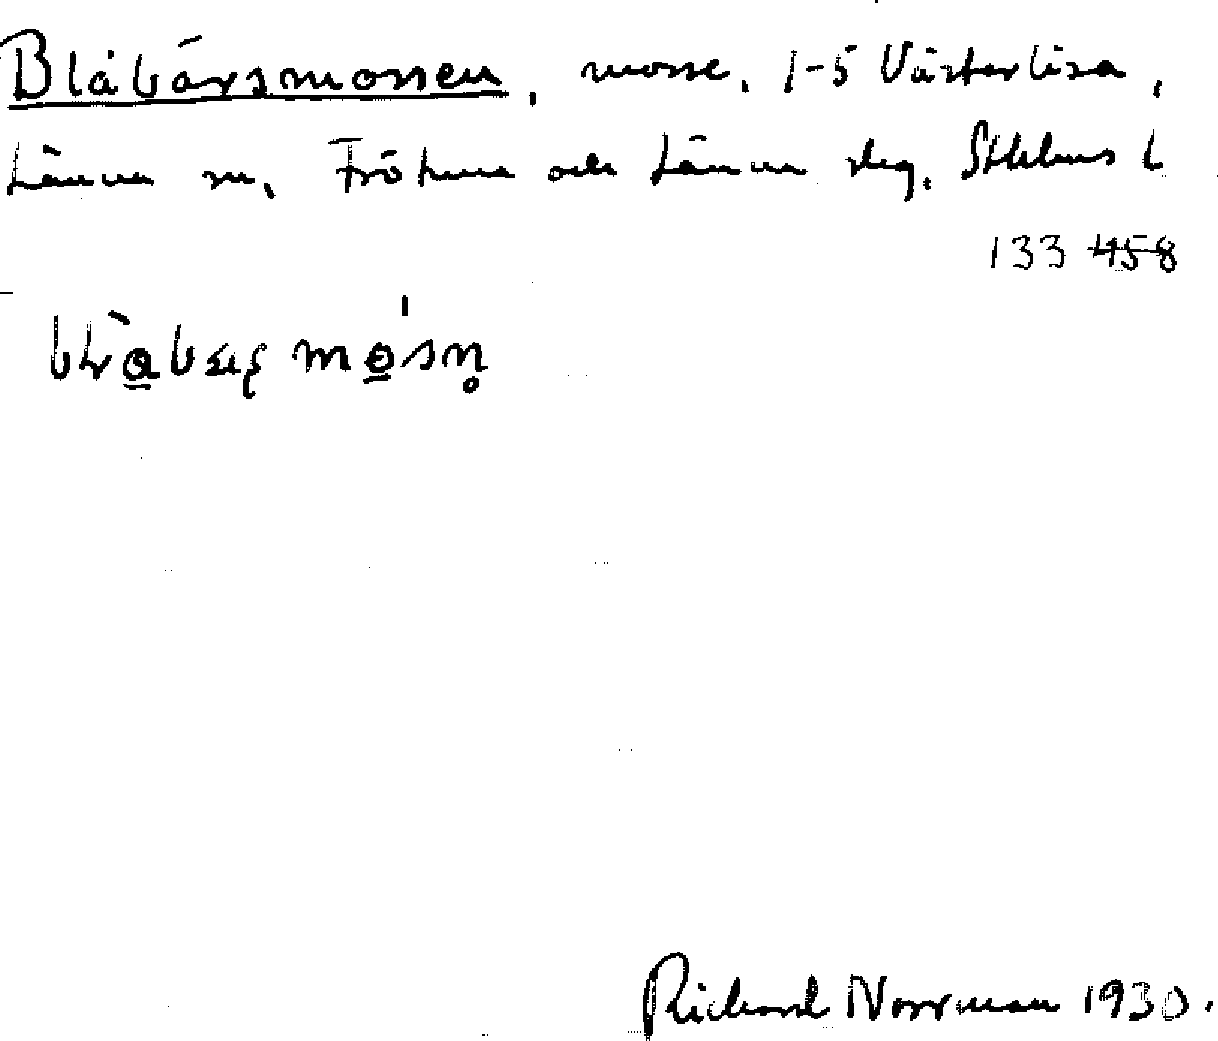 Blåbärsmossen, mosse, 1-5 Västerlisa,
Länna sn, Frötuna och Länna slg, Sthlms l
133 458
Richard Norrman 1930.